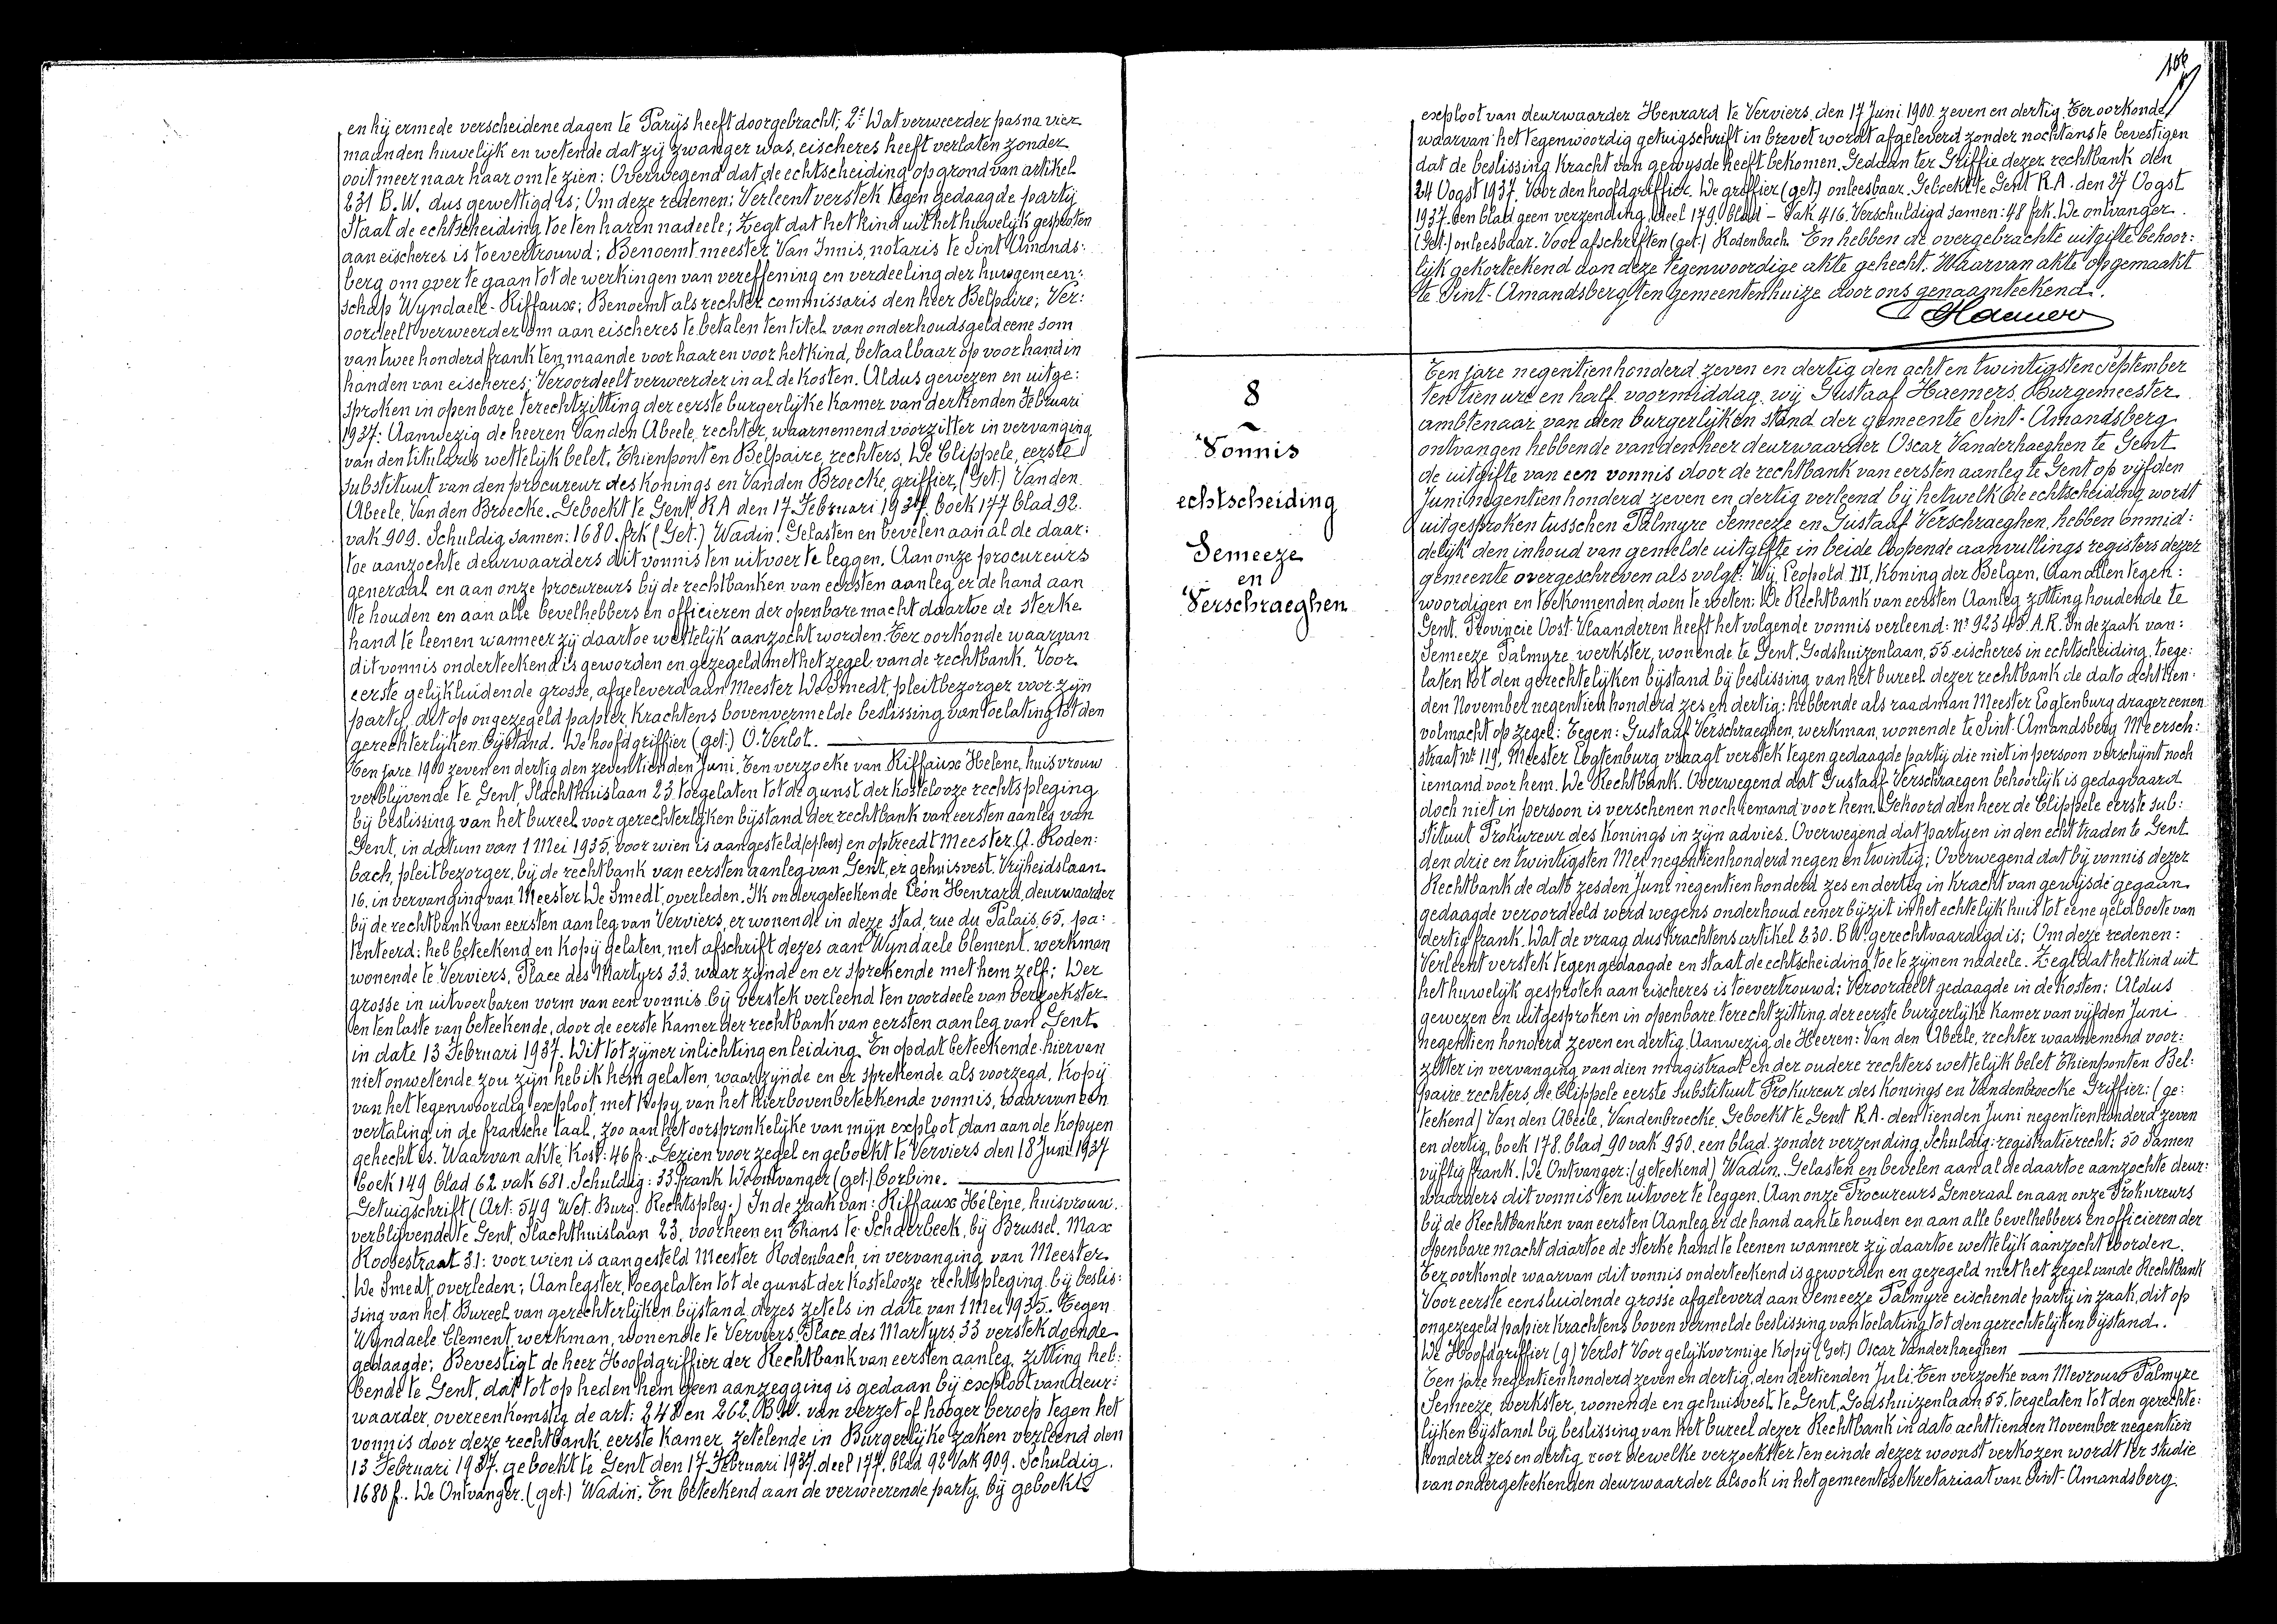 en hij ermede verscheidene dagen te Parijs heeft doorgebracht; 2º Wat verweerder pas na vier
maanden huwelijk en wetende dat zij zwanger was, eischeres heeft verlaten zonder
ooit meer naar haar om te zien: Overwegend dat de echtscheiding op grond van artikel
231 B.W. dus gewettigd is; Om deze redenen: Verleent verstek tegen gedaagde partij
Staat de echtscheiding toe ten haren nadeele; Zegt dat het kind uit het huwelijk gesproten
aan eischeres is toevertrouwd; Benoemt meester Van Innis, notaris te Sint Amands:
berg om over te gaan tot de werkingen van vereffening en verdeeling der huwgemeen:
schap Wyndaele-Riffaux; Benoemt als rechter commissaris den heer Belpaire; Ver:
oordeelt verweerder om aan eischeres te betalen ten titel van onderhoudsgeld eene som
van twee honderd frank ten maande voor haar en voor het kind, betaalbaar op voorhand in
handen van eischeres; Veroordeelt verweerder in al de kosten. Aldus gewezen en uitge:
sproken in openbare terechtzitting der eerste burgerlijke kamer van dertienden Februari
1937: Aanwezig de heeren Van den Abeele, rechter, waarnemend voorzitter in vervanging
van den titularis wettelijk belet, Thienpont en Belpaire, rechters, De Clippele, eerste
substituut van den procureur des konings en Vanden Broecke, griffier, (Get.) Vanden
Abeele, Van den Broecke. Geboekt te Gent RA den 17 Februari 1937. boek 177 blad 92.
vak 909. Schuldig samen: 1680 frk (Get.) Wadin. Gelasten en bevelen aan al de daar:
toe aanzochte deurwaarders dit vonnis ten uitvoer te leggen. Aan onze procureurs
generaal en aan onze procureurs bij de rechtbanken van eersten aanleg er de hand aan
te houden en aan alle bevelhebbers en officieren der openbare macht daartoe de sterke
hand te leenen wanneer zij daartoe wettelijk aanzocht worden. Ter oorkonde waarvan
dit vonnis onderteekend is geworden en gezegeld met het zegel van de rechtbank. Voor
eerste gelijkluidende grosse, afgeleverd aan Meester De Smedt, pleitbezorger voor zijn
partij, dit op ongezegeld papier, krachtens bovenvermelde beslissing van toelating tot den
gerechterlijken bijstand. De hoofdgriffier (get.) O. Verlot.
Ten jare 1900 zeven en dertig den zeventienden Juni. Ten verzoeke van Riffaux Helene, huisvrouw
verblijvende te Gent, Slachthuislaan 23, toegelaten tot de gunst der kostelooze rechtspleging
bij beslissing van het bureel voor gerechterlijken bijstand der rechtbank van eersten aanleg van
Gent, in datum van 1 Mei 1935, voor wien is aangesteld en optreedt Meester A. Roden:
bach, pleitbezorger, bij de rechtbank van eersten aanleg van Gent, er gehuisvest Vrijheidslaan
16. in vervanging van Meester De Smedt, overleden. Ik ondergeteekende Léon Henrard, deurwaarder
bij de rechtbank van eersten aanleg van Verviers, er wonende in deze stad, rue du Palais, 65, pa:
tenteerd: heb beteekend en kopij gelaten, met afschrift dezes aan Wyndaele Clement. werkman
wonende te Verviers, Place des Martyrs 33. waar zijnde en er sprekende met hem zelf: Der
grosse in uitvoerbaren vorm van een vonnis bij verstek verleend ten voordeele van verzoekster
en ten laste van beteekende, door de eerste kamer der rechtbank van eersten aanleg van Gent
in date 13 Februari 1937. Dit tot zijner inlichting en leiding. En opdat beteekende hiervan
niet onwetende zou zijn heb ik hem gelaten, waar zijnde en er sprekende als voorzegd, kopij
van het tegenwoordig exploot met kopij van het hierboven beteekende vonnis, waarvan een
vertaling in de fransche taal, zoo aan het oorspronkelijke van mijn exploot dan aan de kopijen
gehecht is. Waarvan akte, Kost: 46 fr. Gezien voor zegel en geboekt te Verviers den 18 Juni 1937
boek 149 blad 62 vak 681. Schuldig: 33 frank De ontvanger (get.) Corbine.
Getuigschrift (Art: 549 Wet. Burg. Rechtspleg.) In de zaak van: Riffaux Hélène, huisvrouw.
verblijvende te Gent, Slachthuislaan 23, voorheen en thans te Schaerbeek, bij Brussel. Max
Roosestraat 31: voor wien is aangesteld Meester Rodenbach, in vervanging van Meester
De Smedt, overleden; Aanlegster, toegelaten tot de gunst der kostelooze rechtspleging bij beslis:
sing van het Bureel van gerechterlijken bijstand dezes zetels in date van 1 Mei 1935. Tegen
Wyndaele Clement, werkman, wonende te Verviers, Place des Martyrs 33 verstek doende
gedaagde; Bevestigt de heer Hoofdgriffier der Rechtbank van eersten aanleg, zitting heb:
bende te Gent, dat tot op heden hem geen aanzegging is gedaan bij exploot van deur:
waarder, overeenkomstig de art: 248 en 262 B.W. van verzet of hooger beroep tegen het
vonnis door deze rechtbank, eerste kamer, zetelende in Burgerlijke zaken verleend den
13 Februari 1937. geboekt te Gent den 17 Februari 1937. deel 177. blad 92 Vak 909. Schuldig.
1680 f.. De Ontvanger. (get.) Wadin. En beteekend aan de verweerende partij, bij geboekt
106
exploot van deurwaarder Henrard te Verviers, den 17 Juni 1900 zeven en dertig. Ter oorkonde
waarvan het tegenwoordig getuigschrift in brevet wordt afgeleverd zonder nochtans te bevestigen
dat de beslissing kracht van gewijsde heeft bekomen. Gedaan ter Griffie dezer rechtbank den
24 Oogst 1937. Voor den hoofdgriffier. De griffier (get.) onleesbaar. Geboekt te Gent R.A. den 27 Oogst
1937. een blad geen verzending, deel 179. blad - Vak 416. Verschuldigd samen: 48 frk. De ontvanger.
(Get.) onleesbaar. Voor afschriften (get.) Rodenbach. En hebben de overgebrachte uitgifte behoor:
lijk gekorteekend aan deze tegenwoordige akte gehecht. Waarvan akte opgemaakt
te Sint-Amandsberg ten gemeentenhuize door ons genaamteekend.
8
Vonnis
echtscheiding
Semeeze
en
Verschraeghen
Ten jare negentienhonderd zeven en dertig den acht en twintigsten September
ten tien ure en half voormiddag, wij Gustaaf Haemers, Burgemeester
ambtenaar van den burgerlijken stand der gemeente Sint-Amandsberg
ontvangen hebbende van den heer deurwaarder Oscar Vanderhaeghen te Gent
de uitgifte van een vonnis door de rechtbank van eersten aanleg te Gent op vijfden
Juni negentienhonderd zeven en dertig verleend bij hetwelk de echtscheiding wordt
uitgesproken tusschen Palmyre Semeeze en Gustaaf Verschraeghen, hebben onmid:
delijk den inhoud van gemelde uitgifte in beide loopende aanvullings registers dezer
gemeente overgeschreven als volgt: Wij, Leopold III, Koning der Belgen, Aan allen tegen:
woordigen en toekomenden doen te weten: De Rechtbank van eersten Aanleg zitting houdende te
Gent. Provincie Oost-Vlaanderen heeft het volgende vonnis verleend: nº 92345 A.R. In de zaak van:
Semeeze Palmyre, werkster, wonende te Gent, Godshuizenlaan, 55 eischeres in echtscheiding. toege:
laten tot den gerechtelijken bijstand bij beslissing van het bureel dezer rechtbank de dato achttien:
den November negentien honderd zes en dertig: hebbende als raadman Meester Logtenburg drager eener
volmacht op zegel: Tegen: Gustaaf Verschraeghen, werkman, wonende te Sint-Amandsberg Meersch:
straat nr 119, Meester Logtenburg vraagt verstek tegen gedaagde partij die niet in persoon verschijnt noch
iemand voor hem. De Rechtbank. Overwegend dat Gustaaf Verschraegen behoorlijk is gedagvaard
doch niet in persoon is verschenen noch iemand voor hem. Gehoord den heer de Clippele eerste sub:
stituut Prokureur des Konings in zijn advies. Overwegend dat partyen in den echt traden te Gent
den drie en twintigsten Mei negentienhonderd negen en twintig; Overwegend dat bij vonnis dezer
Rechtbank de dato zesden Juni negentienhonderd zes en dertig in kracht van gewijsde gegaan
gedaagde veroordeeld werd wegens onderhoud eener bijzit in het echtelijk huis tot eene geldboete van
dertig frank. Dat de vraag dus krachtens artikel 230. B.W. gerechtvaardigd is; Om deze redenen:
Verleent verstek tegen gedaagde en staat de echtscheiding toe te zijnen nadeele. Zegt dat het kind uit
het huwelijk gesproten aan eischeres is toevertrouwd: Veroordeelt gedaagde in de kosten: Aldus
gewezen en uitgesproken in openbare terechtzitting der eerste burgerlijke Kamer van vijfden Juni
negentien honderd zeven en dertig. Aanwezig de Heeren: Van den Abeele, rechter waarnemend voor:
zitter in vervanging van dien magistraat en der oudere rechters wettelijk belet Thienpont en Bel:
paire rechters, de Clippele eerste substituut Prokureur des Konings en Vandenbroecke Griffier: (ge:
teekend) Van den Abeele, Vandenbroecke, Geboekt te Gent R.A. den tienden Juni negentienhonderd zeven
en dertig, boek 178. blad 90 vak 950. een blad. zonder verzending. Schuldig: registratierecht: 50 Samen
vijftig frank. De Ontvanger: (geteekend) Wadin. Gelasten en bevelen aan al de daartoe aanzochte deur:
waarders dit vonnis ten uitvoer te leggen. Aan onze Procureurs Generaal en aan onze Prokureurs
bij de Rechtbanken van eersten Aanleg er de hand aan te houden en aan alle bevelhebbers en officieren der
openbare macht daartoe de sterke hand te leenen wanneer zij daartoe wettelijk aanzocht worden.
Ter oorkonde waarvan dit vonnis onderteekend is geworden en gezegeld met het zegel van de Rechtbank
Voor eerste eensluidende grosse afgeleverd aan Semeeze Palmyre eischende partij in zaak, dit op
ongezegeld papier krachtens boven vermelde beslissing van toelating tot den gerechtelijken bijstand.
De Hoofdgriffier (g) Verlot Voor gelijkvormige kopij (Get) Oscar Vanderhaeghen
Ten jare negentienhonderd zeven en dertig, den dertienden Juli. Ten verzoeke van Mevrouw Palmyre
Semeeze, werkster, wonende en gehuisvest te Gent, Godshuizenlaan 55. toegelaten tot den gerechte:
lijken bijstand bij beslissing van het bureel dezer Rechtbank in dato achttienden November negentien
honderd zes en dertig voor dewelke verzoekster ten einde dezer woonst verkozen wordt ter studie
van ondergeteekenden deurwaarder alsook in het gemeentesekretariaat van Sint-Amandsberg.